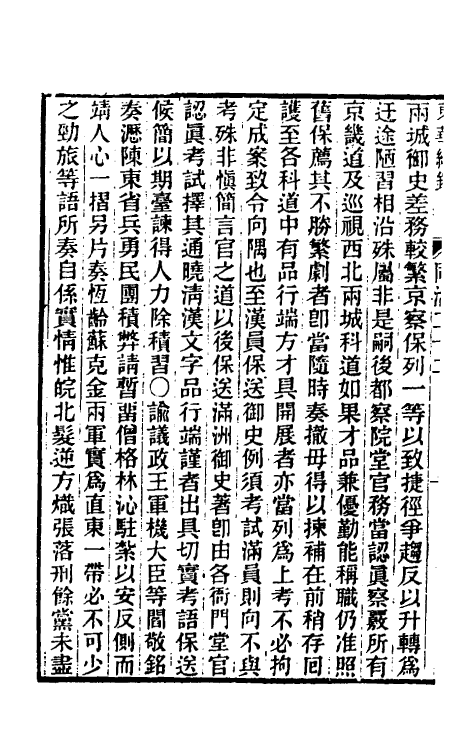 兩城御史差務較繁京察保列一等以致捷徑爭趨反以升轉爲
迂途陋習相沿殊屬非是嗣後都察院堂官務當認眞察覈所有
京畿道及巡視西北兩城科道如果才品兼優勤能稱職仍准照
舊保薦其不勝繁劇者卽當隨時奏撤毋得以揀補在前稍存囘
護至各科道中有品行端方才具開展者亦當列爲上考不必拘
定成案致令向隅也至漢員保送御史例須考試滿員則向不與
考殊非愼簡言官之道以後保送滿洲御史著卽由各衙門堂官
認眞考試擇其通曉淸漢文字品行端謹者出具切實考語保送
候簡以期臺諫得人力除積習〇諭議政王軍機大臣等閻敬銘
奏瀝陳東省兵勇民團積弊請暫留僧格林沁駐紮以安反側而
靖人心一摺另片奏恆齡蘇克金兩軍實爲直東一帶必不可少
之勁旅等語所奏自係實情惟皖北髮逆方熾張落刑餘黨未盡